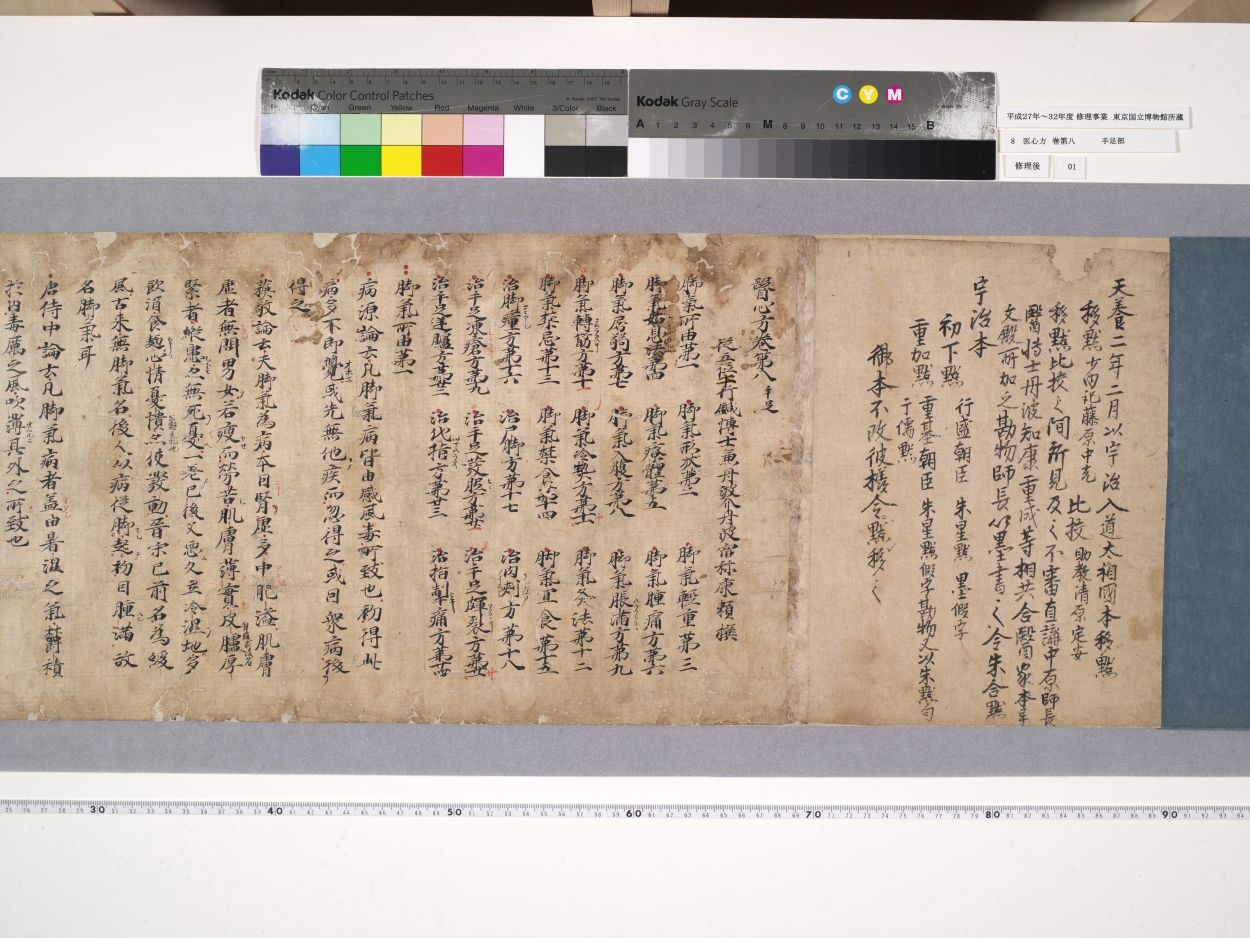 Kodak Color Control Patches
Cyan Green Yellow Red Magenta White 3/Color Black
Kodak Gray Scale
C Y M
A 1 2 3 4 5 6 M 8 9 10 11 12 13 14 15 B
平成27年～32年度 修理事業 東京国立博物館所蔵
8 医心方 巻第八 手足部
修理後 01
天養二年二月以宇治入道太相國本移點
移點 少内記藤原中光 比挍 助教清原定安
移點比挍之間所見及之不審直講中原師長
醫博士丹波知康重成等相共合醫家本畢
文殿所加之勘物師長以墨書之令朱合點
宇治本
初下點 行盛朝臣 朱星點 墨假字
重加點 重基朝臣 朱星點假字勘物又以朱點句
于儒點
御本不改彼樣令點移之
醫心方卷第八 手足
從五位下行鍼博士兼丹波介丹波宿祢康頼撰
脚氣所由第一 脚氣形狀第二 脚氣輕重第三
脚氣姑息法第四 脚氣療體第五 脚氣腫痛方第六
脚氣屈弱方第七 脚氣入腹方第八 脚氣脹満方第九
脚氣轉筋方第十 脚氣冷熱方第十一 脚氣灸法第十二
脚氣禁忌第十三 脚氣禁食第十四 脚氣宜食第十五
治脚腫方第十六 治尸脚方第十七 治肉刺方第十八
治手足凍瘡方第十九
脚氣所由第一
病源論云凡脚氣病皆由感風毒所致也初得此
病多不即覺或先無他疾而忽得之或曰衆病後
得之
蘇敬論云夫脚氣為病本因腎虚多中肥溢肌膚
虚者無問男女若瘦而勞苦肌膚薄實皮膚厚
緊者縱患亦無死憂一老已後又惡久立冷濕地多
飲酒食麺心情憂憒亦使發動晉宋已前名為緩
風古來無脚氣名後人以病從脚起初因腫満故
名脚氣耳
唐侍中論云凡脚氣病者盖由暑濕之氣欝積
於内毒厲之風吹薄其外之所致也
30 40 50 60 70 80 90